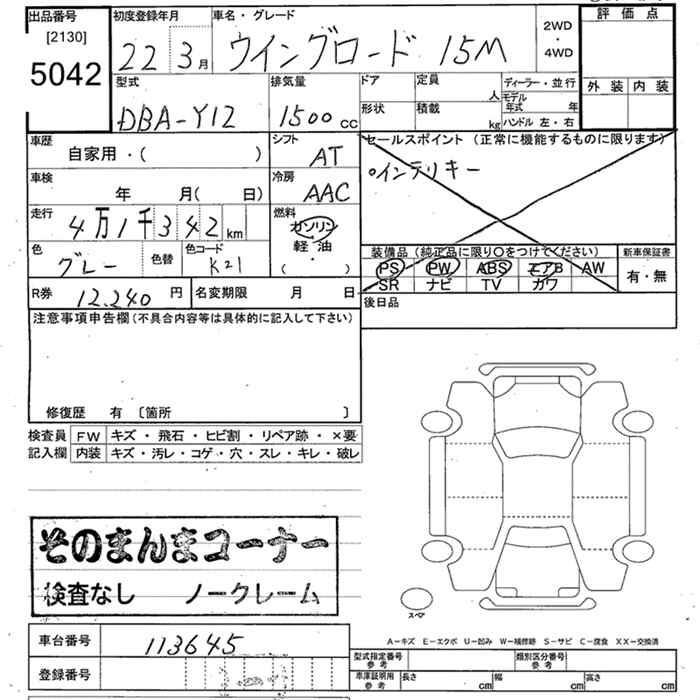 出品番号 [2130] 5042
初度登録年月 22 3月
車名・グレード ウイングロード 15M
2WD・4WD
評価点
外装 内装
型式 DBA-Y12
排気量 1500cc
ドア 定員 人
形状 積載 kg
ディーラー・並行
モデル年式 年
ハンドル 左・右
車歴 自家用・( )
シフト AT
セールスポイント (正常に機能するものに限ります)
○インテリキー
車検 年 月( 日)
冷房 AAC
走行 4万1千342km
燃料 ガソリン 軽油・( )
色 グレー 色替 色コード K21
装備品 (純正品に限り○をつけてください)
PS PW ABS エアB AW
SR ナビ TV カワ
新車保証書 有・無
R券 12,240円 名変期限 月 日
後日品
注意事項申告欄(不具合内容等は具体的に記入して下さい)
修復歴 有〔箇所 〕
検査員記入欄
FW キズ・飛石・ヒビ割・リペア跡・×要
内装 キズ・汚レ・コゲ・穴・スレ・キレ・破レ
そのまんまコーナー
検査なし ノークレーム
スペア
A-キズ E-エクボ U-凹み W-補修跡 S-サビ C-腐食 XX-交換済
車台番号 113645
登録番号
型式指定番号 参考 類別区分番号 参考
車庫証明用 参考 長さ cm 幅 cm 高さ cm